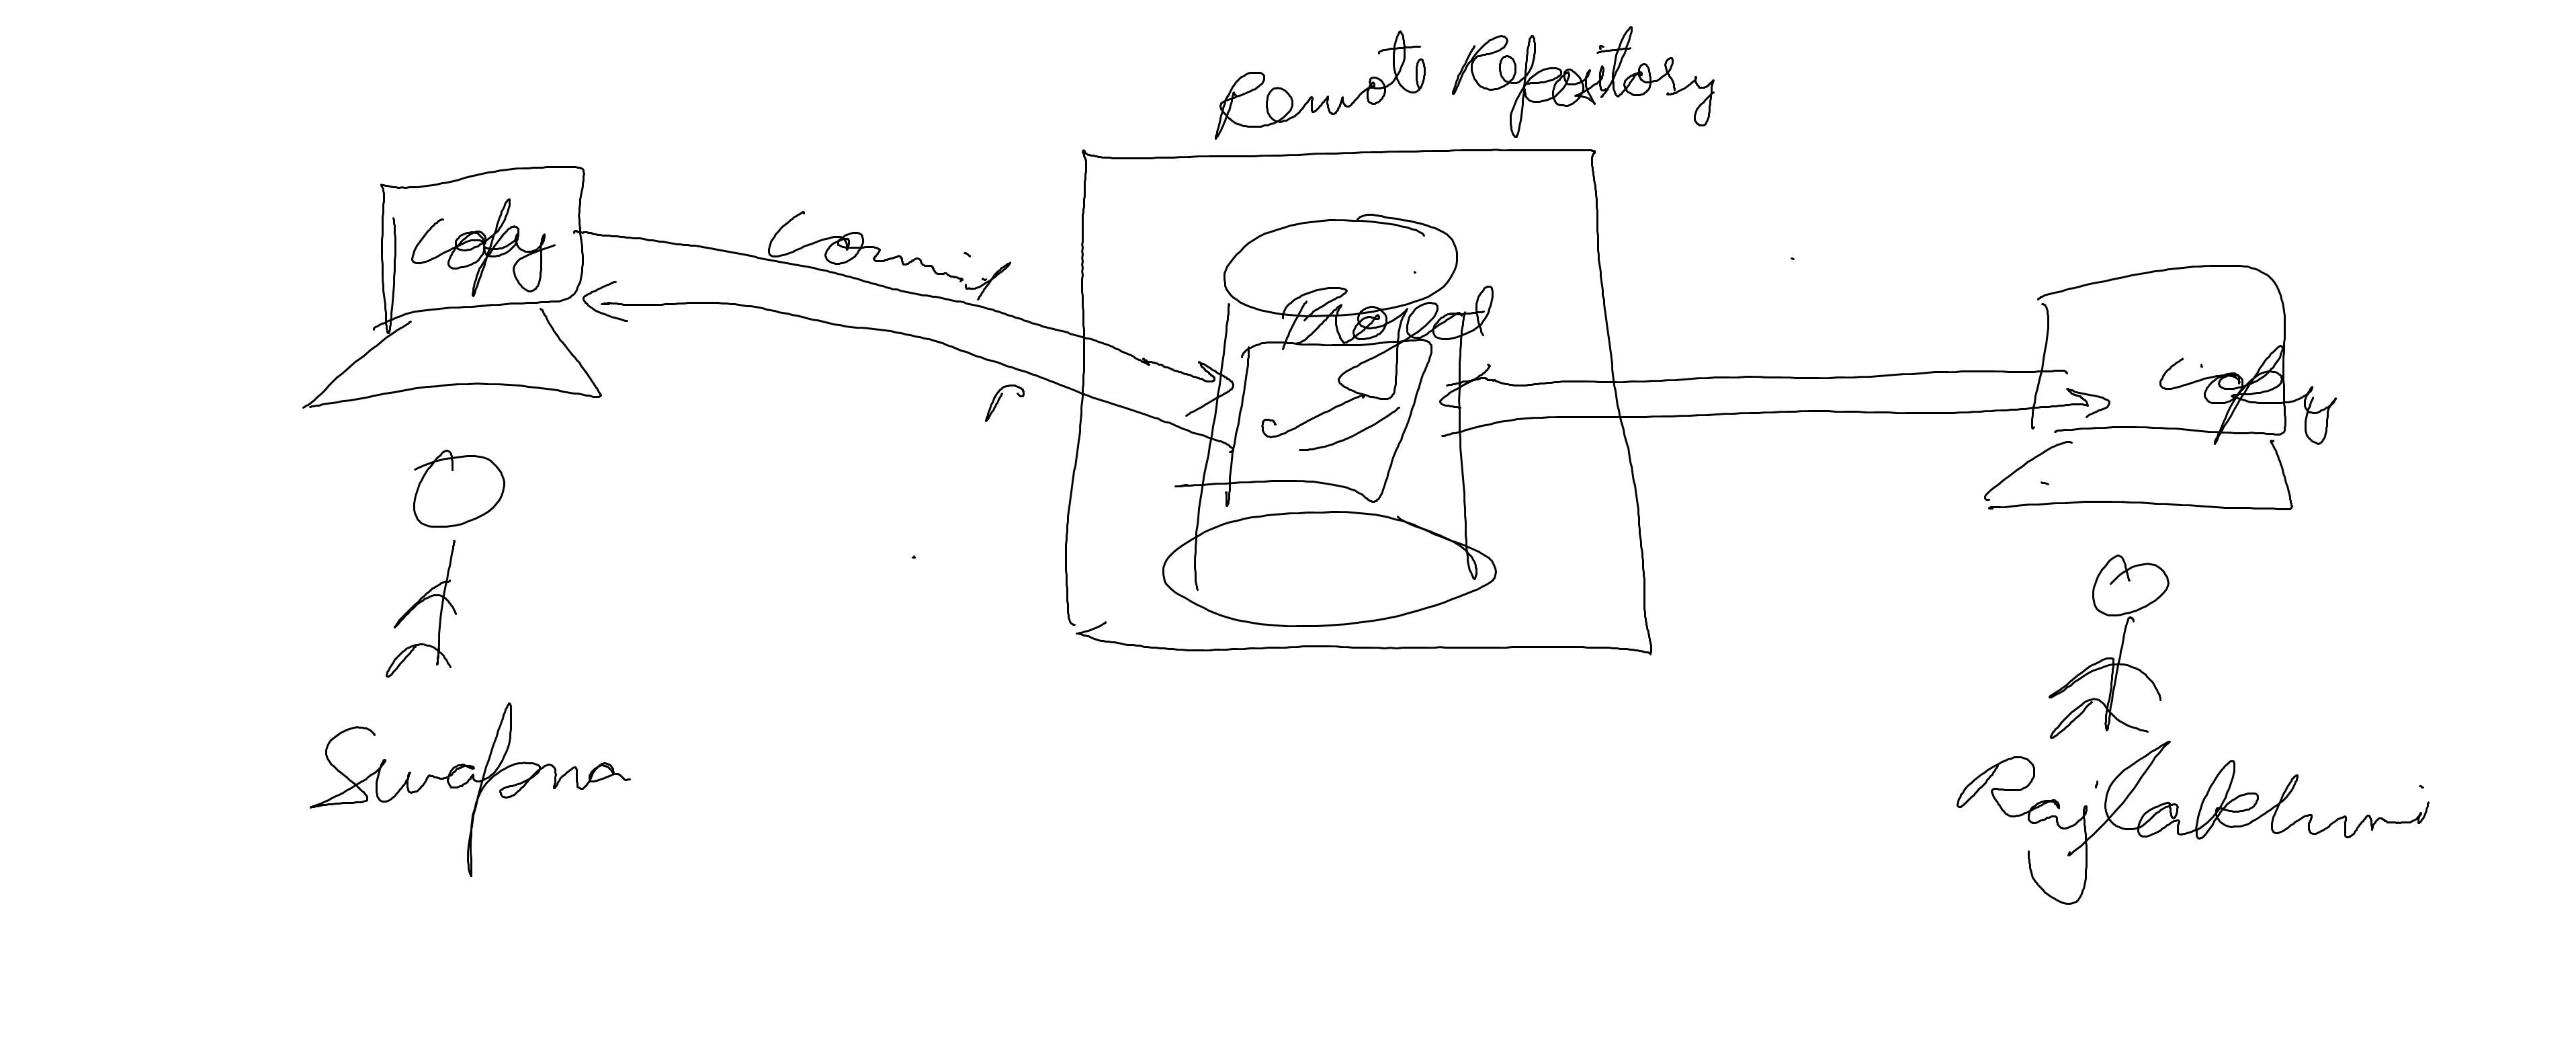 Remote Repository
Copy
Commit
Project
Copy
Swapna
Rajlakhmi